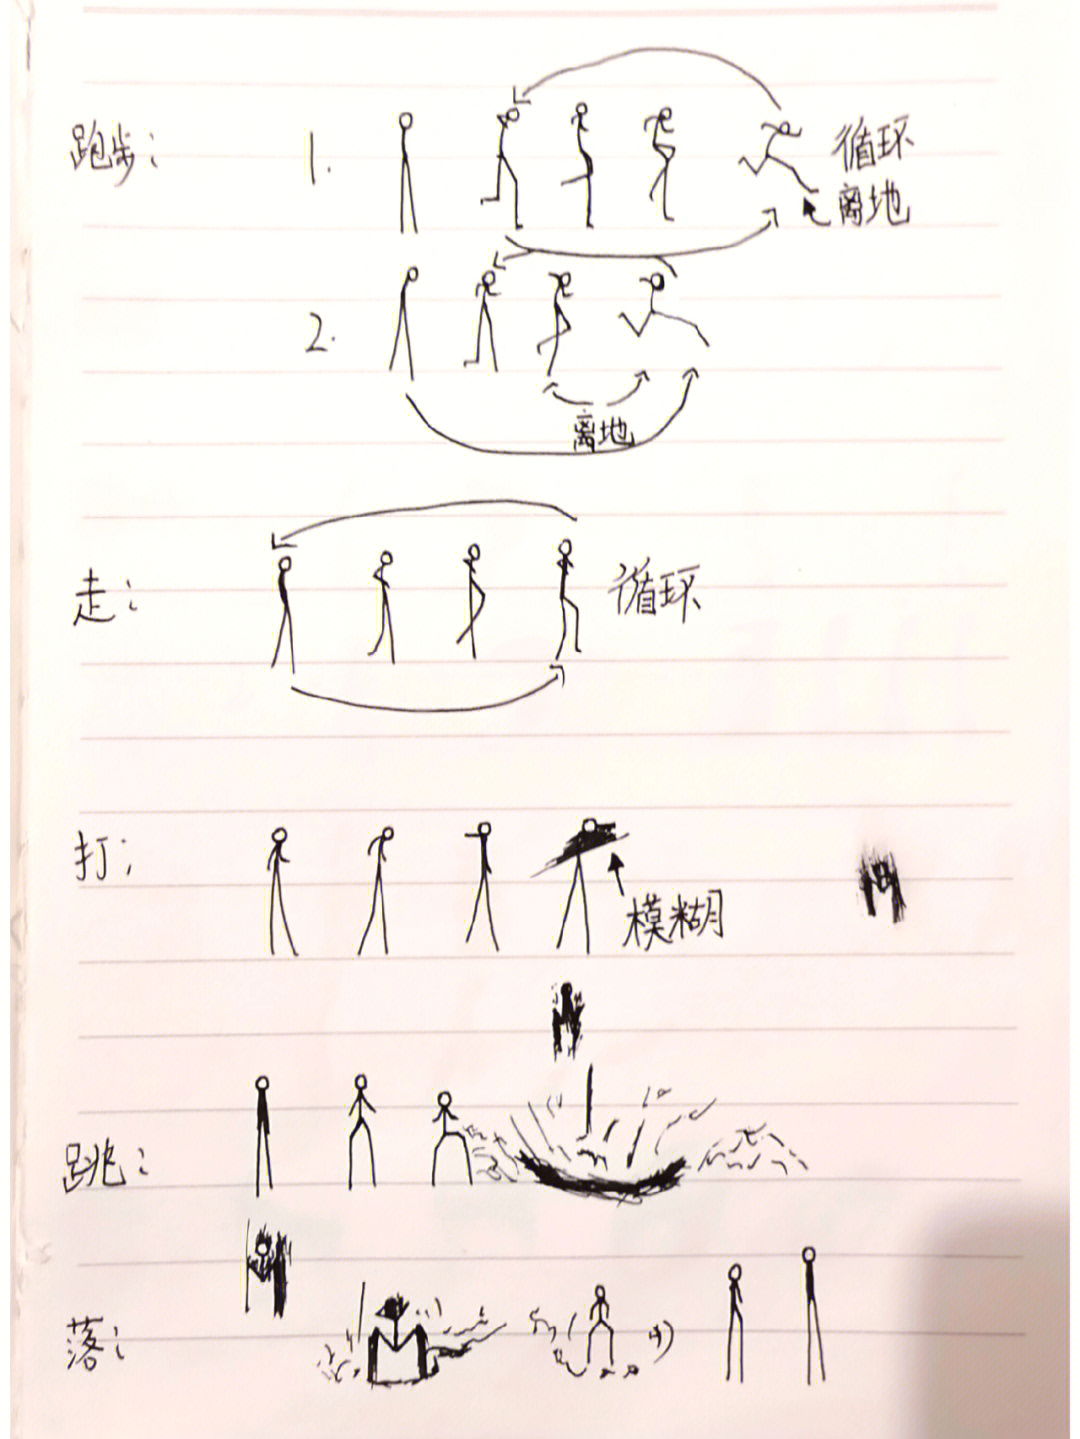 跑步: 1. 循环
离地
2.
离地
走: 循环
打:
模糊
跳:
落: